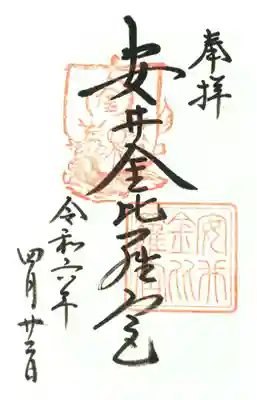 奉拝
安井金比羅宮
令和六年
四月廿三日
安井
金比
羅宮